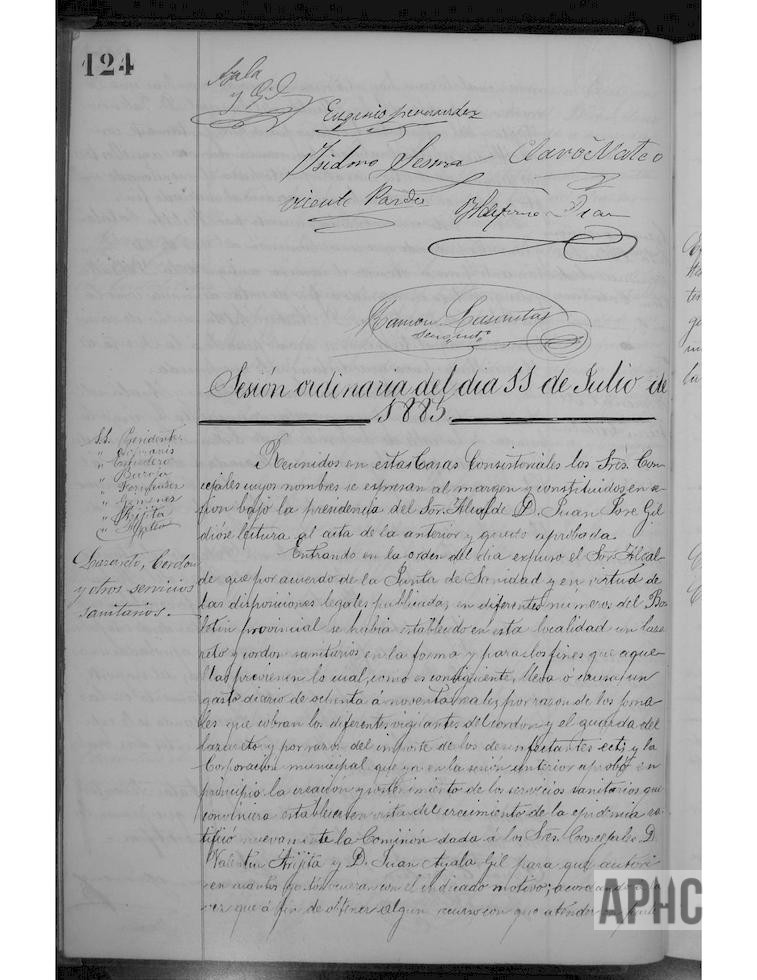 124
Ayala
y Gil
Eugenio Fernandez
Isidoro Sesma Claro Mateo
Vicente Pardo
Ramon Lasantas
Secret.º
Sesión ordinaria del dia 11 de Julio de
1885.
S.S. Presidente
" Escudero
" Barrio
" Fernandez
" Gimenez
" Arijita
Lazareto, Cordon
y otros servicios
sanitarios.
Reunidos en estas Casas Consistoriales los Sres. Con-
cejales cuyos nombres se espresan al margen y constituidos en se-
sion bajo la presidencia del Sor. Alcalde D. Juan Jose Gil
dióse lectura al acta de la anterior y quedo aprobada.
Entrando en la orden del dia expuso el Sor. Alcal-
de que por acuerdo de la Junta de Sanidad y en virtud de
las disposiciones legales publicadas en diferentes números del Bo-
letin provincial se habia establecido en esta localidad un laza-
reto y cordon sanitarios en la forma y para los fines que aque-
llas previenen lo cual, como es consiguiente, lleva o causa un
gasto diario de ochenta á noventa reales, por razon de los jorna-
les que cobran los diferentes vigilantes del cordon y el guarda del
lazareto y por razon del importe de los desinfectantes ect; y la
Corporacion municipal que ya en la sesión anterior aprobó en
principio la creación y sostenimiento de los servicios sanitarios que
conviniera establecer en vista del crecimiento de la epidemia ra-
tificó nuevamente la Comision dada á los Sres. Concejales D.
Valentin Arijita y D. Juan Ayala Gil para que autori-
cen cuantos gastos ocurran con el indicado motivo; acordando
vez que á fin de obtener algun recurso con que atender
APHC